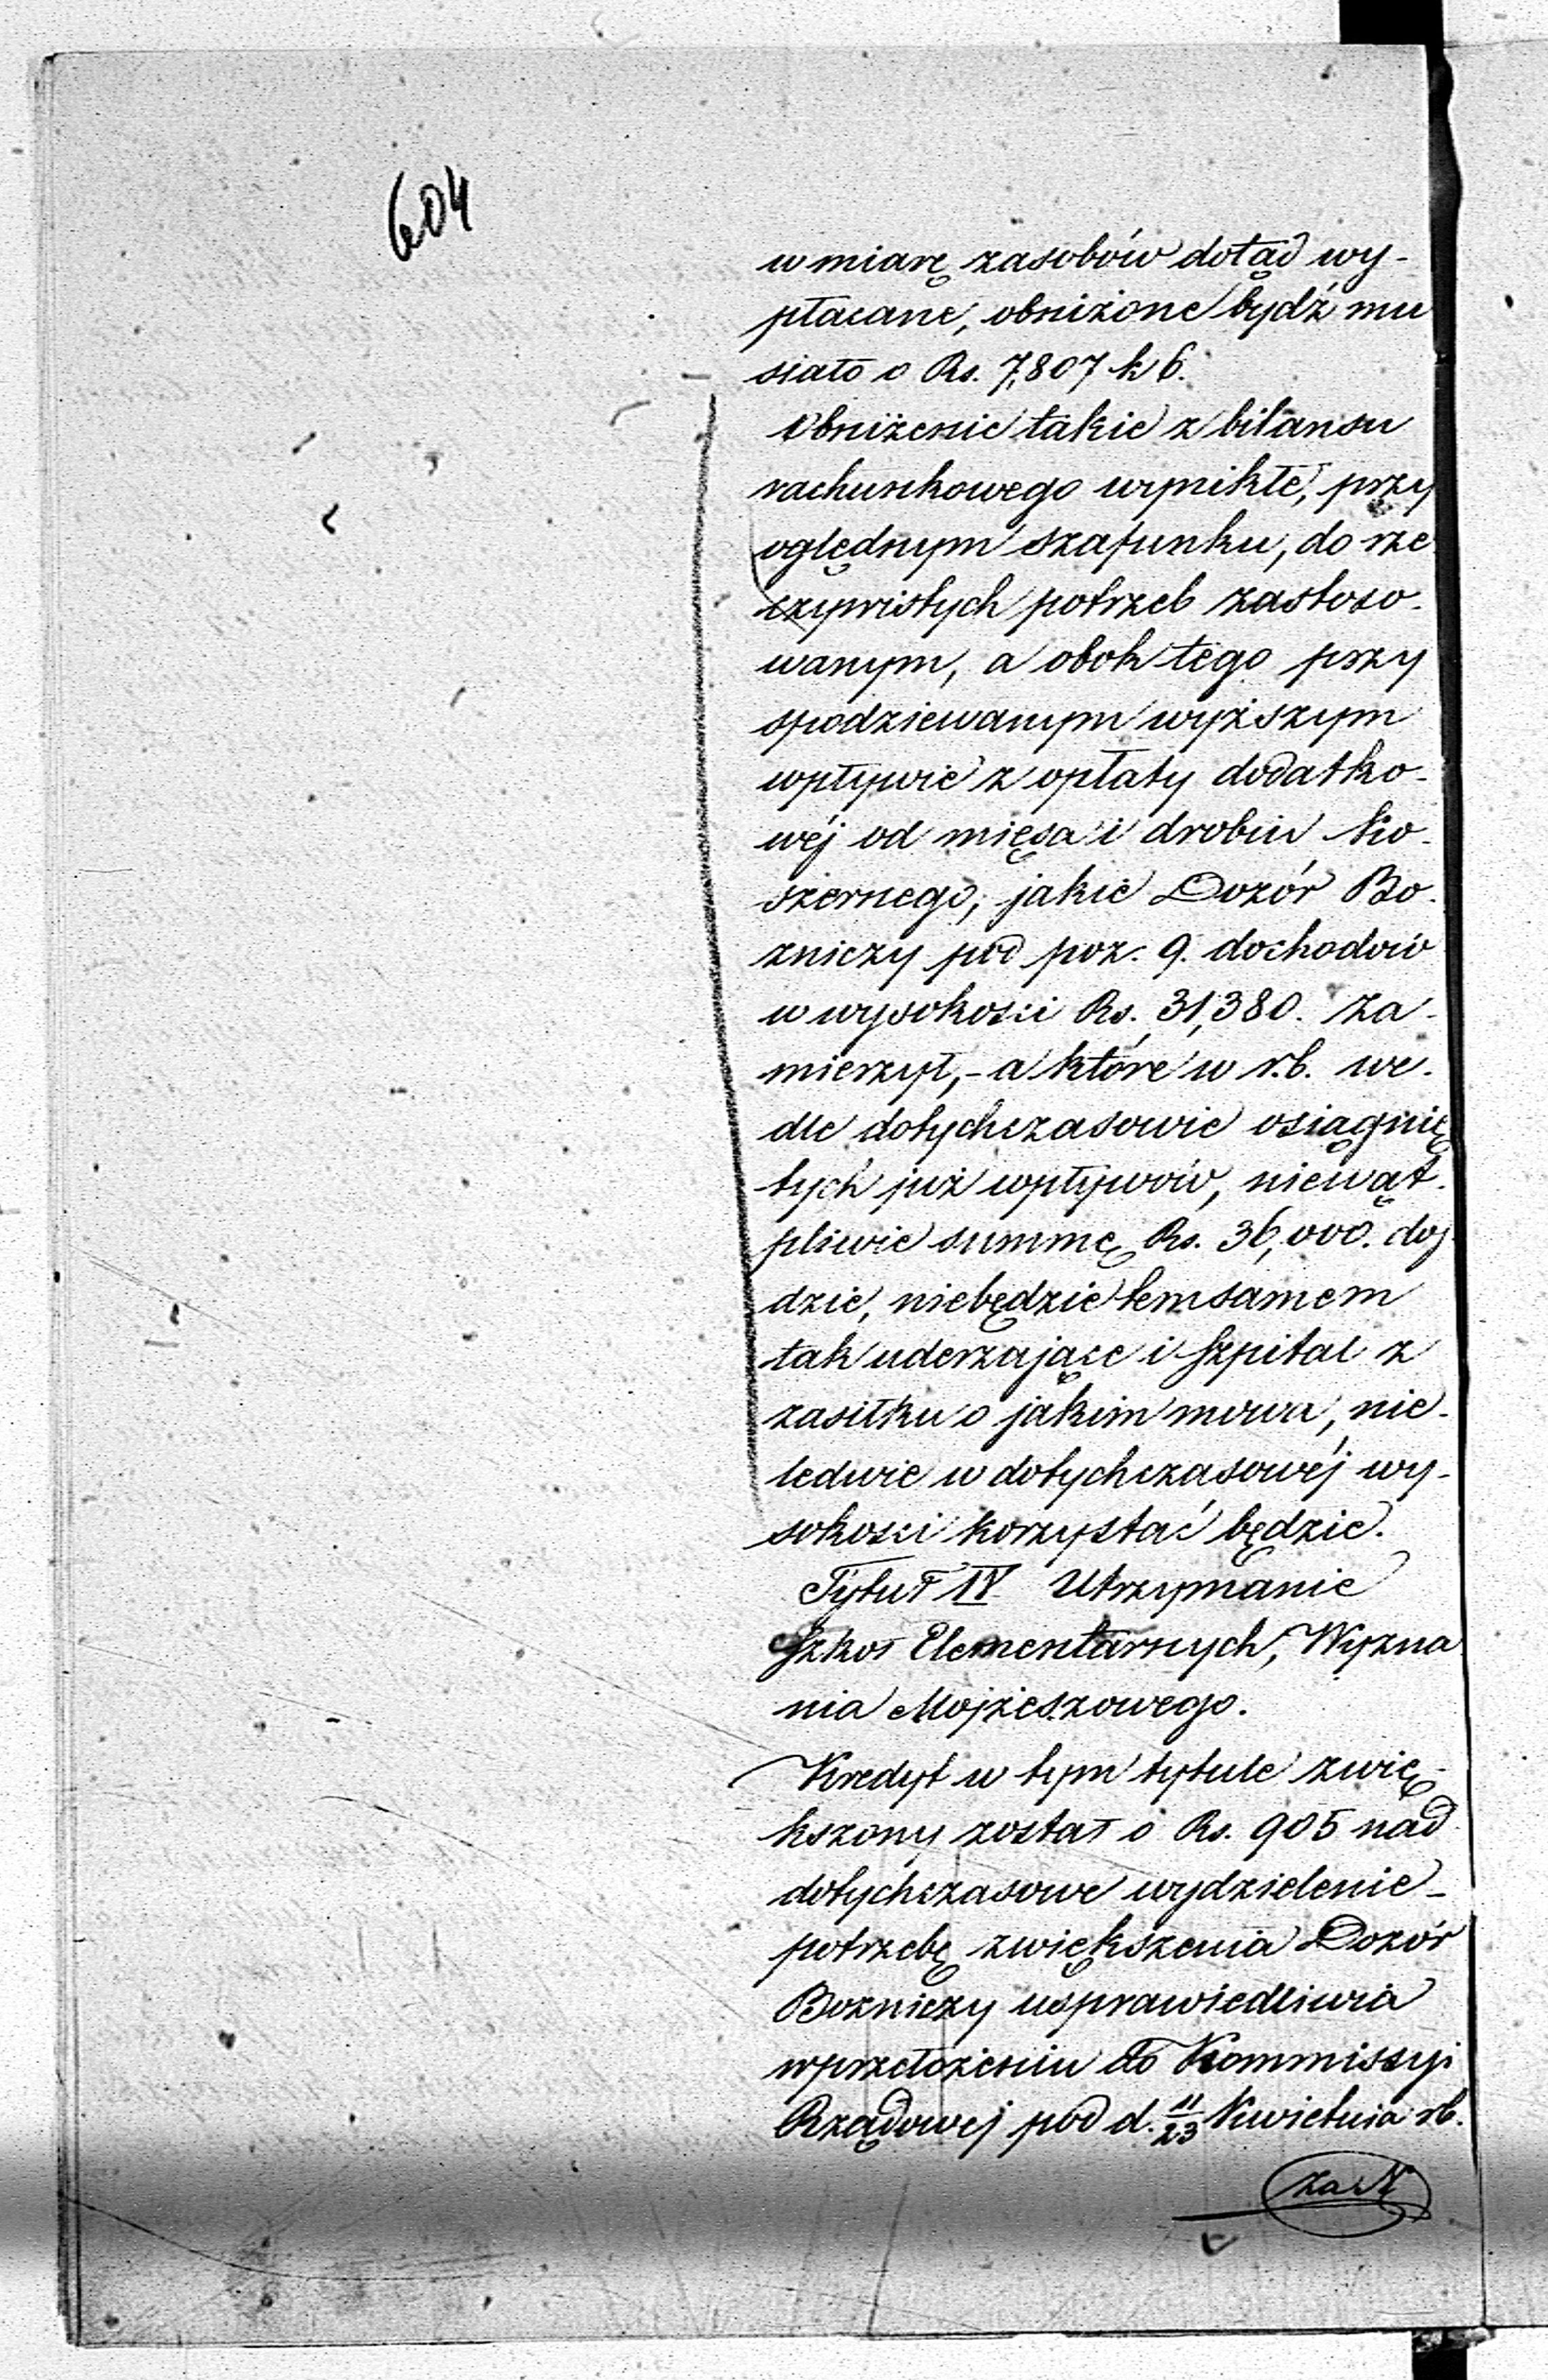 604
w miarę zasobów dotąd wy-
płacane, obniżone bydź mu
siało o Rs. 7,807 k 6.
Obniżenie takie z bilansu
rachunkowego wynikłe, przy
oględnym szafunku, do rze
czywistych potrzeb zastoso-
wanym, a obok tego przy
spodziewanym wyższym
wpływie z opłaty dodatko-
wéj od mięsa i drobiu ko-
szernego, jakie Dozór Bo-
zniczy pod poz. 9. dochodów
w wysokosci Rs. 31,380. za-
mierzył, - a które w r.b. we-
dle dotychczasowie osiągnię
tych już wpływów, niewąt-
pliwie summę Rs. 36,000. doj
dzie, niebędzie temsamem
tak uderzające i Szpital z
zasiłku o jakim mowa, nie-
ledwie w dotychczasowéj wy-
sokosci korzystać będzie.
Tytuł IV Utrzymanie
Szkół Elementarnych, Wyzna
nia Mojżeszowego.
Kredyt w tym tytule zwię-
kszony został o Rs. 905 nad
dotychczasowe wydzielenie -
potrzebę zwiększenia Dozór
Bozniczy usprawiedliwia
w przełożeniu do Kommissyi
Rządowej pod d. 11/23 Kwietnia rb.
za N